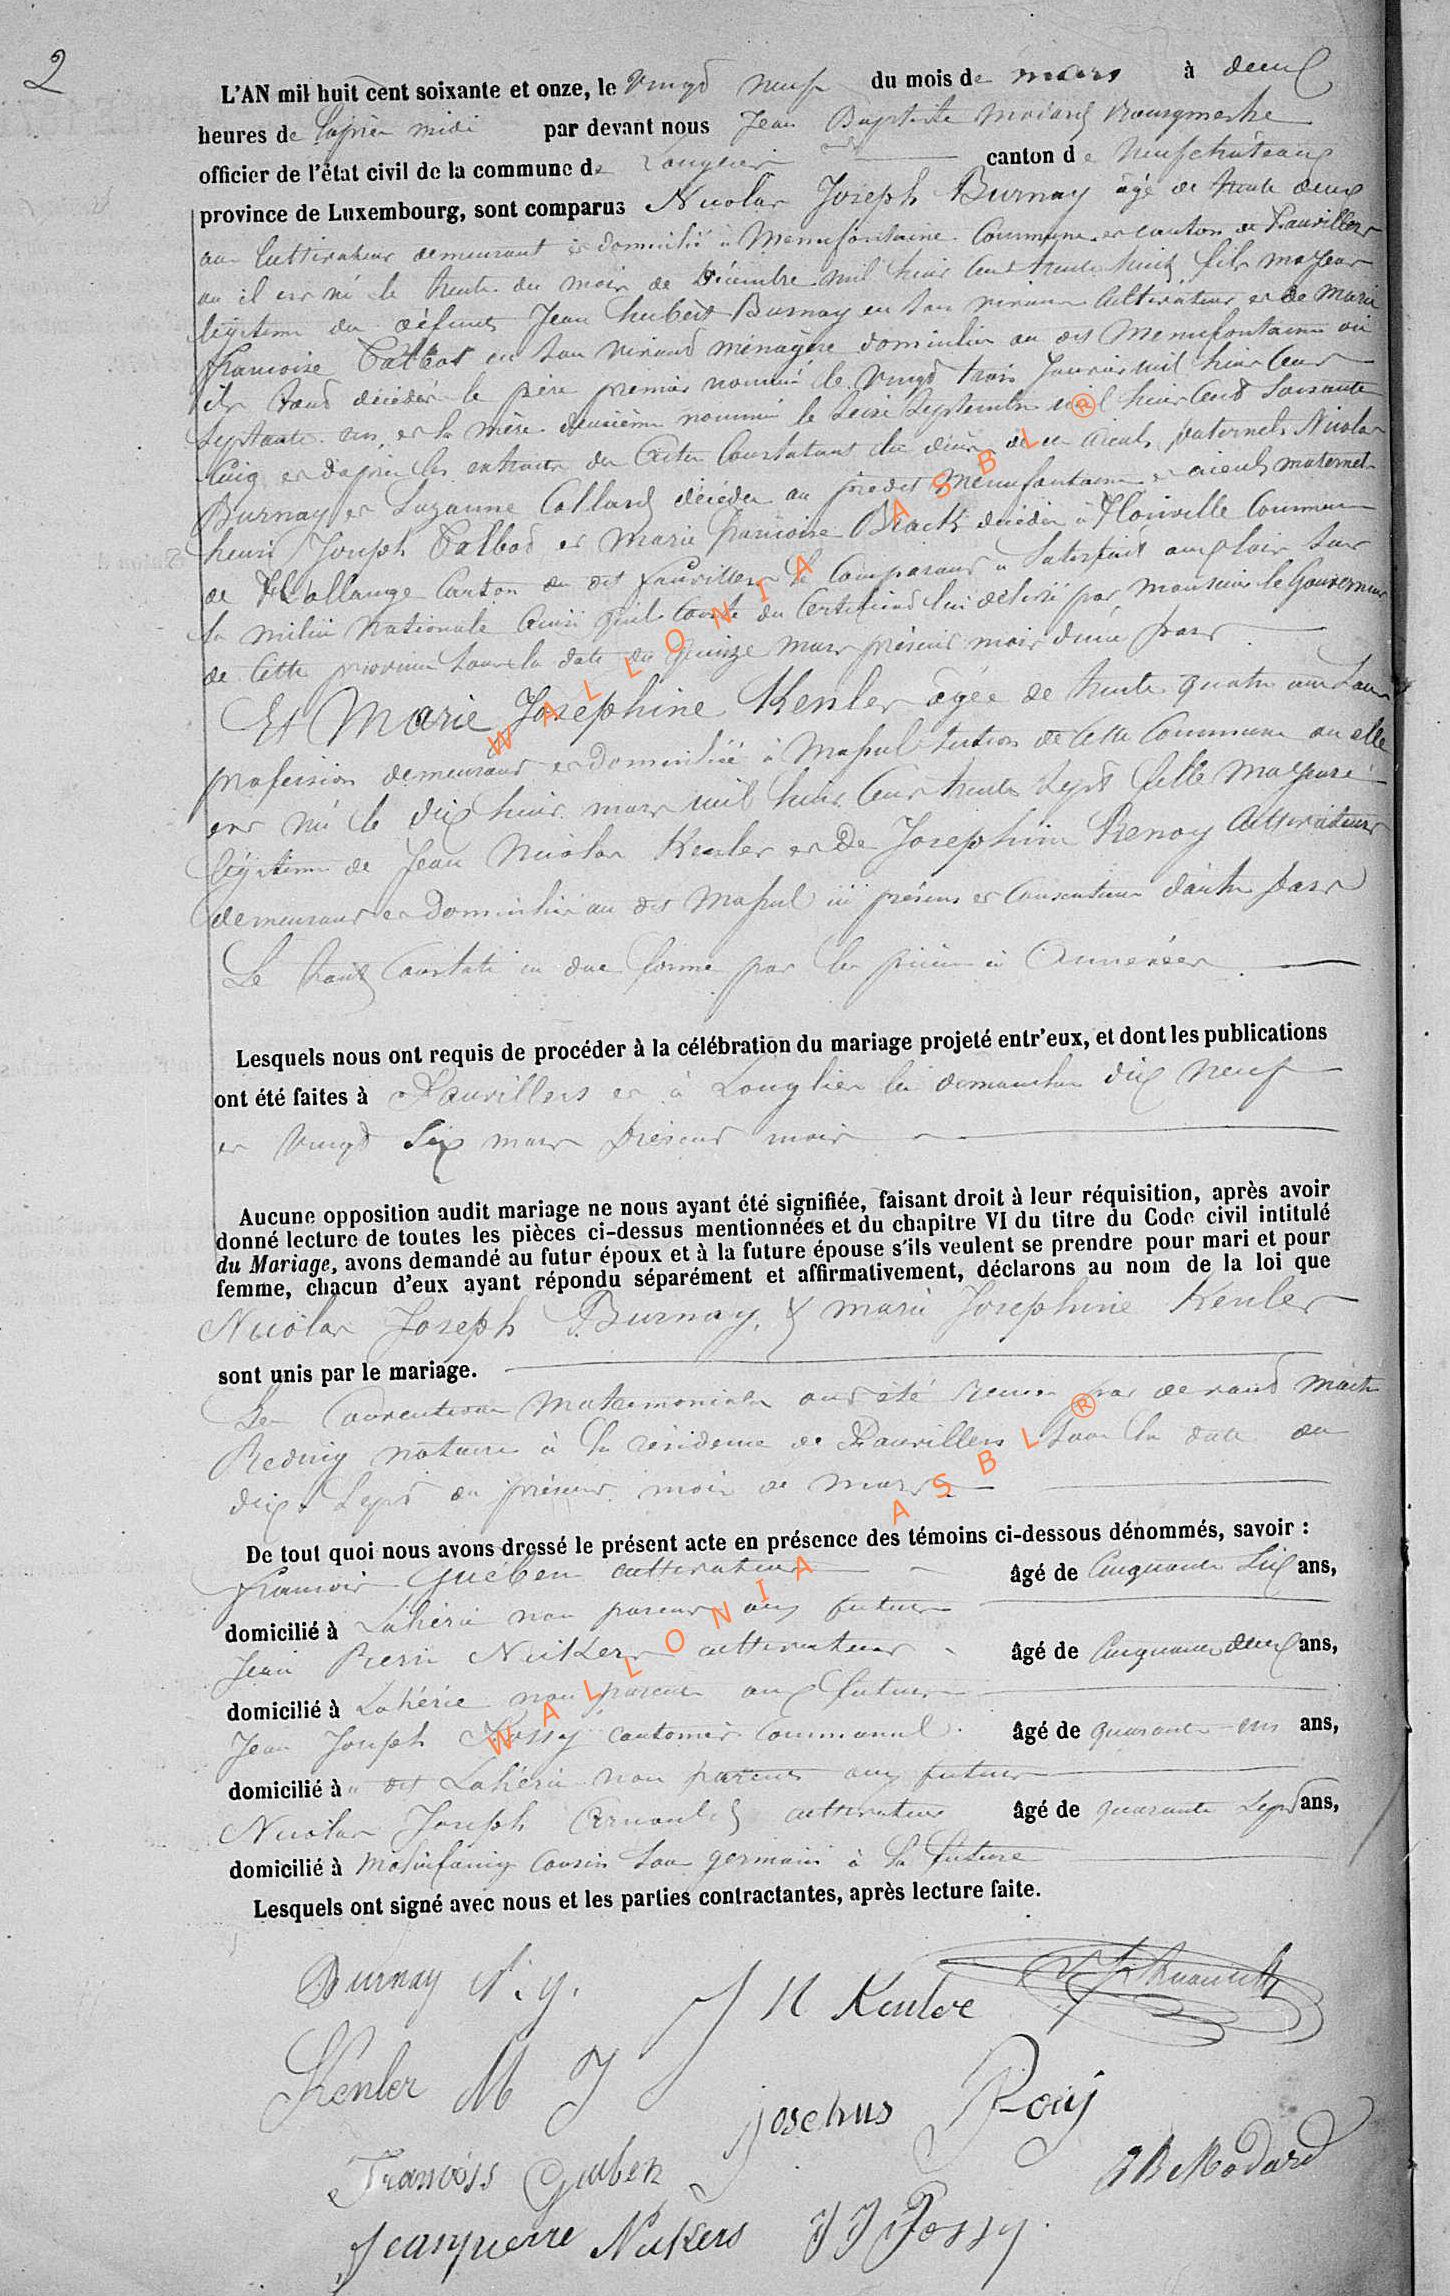 2
L'AN mil huit cent soixante et onze, le vingt neuf du mois de mars à deux
heures de l'après midi par devant nous Jean Baptiste Modard Bourgmestre
officier de l'état civil de la commune de Longlier canton de Neufchâteau
province de Luxembourg, sont comparus Nicolas Joseph Burnay âgé de trente deux
ans Cultivateur demeurant et domicilié à Menufontaine Commune et canton de Fauvillers
où il est né le trente du mois de Décembre mil huit cent trente huit fils majeur
légitime des défunts Jean hubert Burnay en son vivant Cultivateur et de Marie
françoise Talbot en son vivant ménagère domiciliés au dit Menufontaine où
ils sont décédés le père premier nommé le vingt trois Janvier mil huit cent
septante un et la mère deuxième nommée le seize Septembre mil huit cent soixante
cinq et d'après les extraits des actes constatant les décès de ses aïeuls paternels Nicolas
Burnay et Suzanne Collard décédés au prédit Menufontaine et aïeuls maternels
henri Joseph Talbot et Marie françoise décédés à Honville Commune
de Hollange Canton du dit fauvillers le Comparant a satisfait aux lois sur
la milice nationale ainsi qu'il conste du Certificat lui délivré par Monsieur le Gouverneur
de Cette province sous la date du quinze mars présent mois d'une part
Et Marie Josephine Kenler âgée de trente quatre ans sans
profession demeurant et domiciliée à Massul section de Cette Commune où elle
est née le dix huit mars mil huit cent trente sept fille majeure
légitime de Jean Nicolas Kenler et de Josephine Renoy Cultivateurs
demeurant et domiciliés au dit Massul ici présents et consentants d'autre part
Le tout Constaté en due forme par les pièces ci Annexées
Lesquels nous ont requis de procéder à la célébration du mariage projeté entr'eux, et dont les publications
ont été faites à Fauvillers et à Longlier les dimanches dix neuf
et vingt six mars présent mois
Aucune opposition audit mariage ne nous ayant été signifiée, faisant droit à leur réquisition, après avoir
donné lecture de toutes les pièces ci-dessus mentionnées et du chapitre VI du titre du Code civil intitulé
du Mariage, avons demandé au futur époux et à la future épouse s'ils veulent se prendre pour mari et pour
femme, chacun d'eux ayant répondu séparément et affirmativement, déclarons au nom de la loi que
Nicolas Joseph Burnay & marie Josephine Kenler
sont unis par le mariage.
Les Conventions Matrimoniales ont été reçues par devant Maître
Reding notaire à la résidence de Fauvillers sous la date du
dix sept du présent mois de mars
De tout quoi nous avons dressé le présent acte en présence des témoins ci-dessous dénommés, savoir :
françois Guében cultivateur âgé de Cinquante six ans,
domicilié à Lahérie non parent aux futurs
Jean Pierre Neükers cultivateur âgé de Cinquante deux ans,
domicilié à Lahérie non parent aux futurs
Jean Joseph Possy cantonnier communal âgé de quarante un ans,
domicilié à u dit Lahérie non parent aux futurs
Nicolas Joseph Arnould cultivateur âgé de quarante sept ans,
domicilié à Molinfaing cousin sous germain à la future
Lesquels ont signé avec nous et les parties contractantes, après lecture faite.
Burnay N. J. J N Kenler
Kenler M J
François Gueben J B Modard
Jeanpierre Neükers J J Possy
WALLONIA ASBL ®
WALLONIA ASBL ®